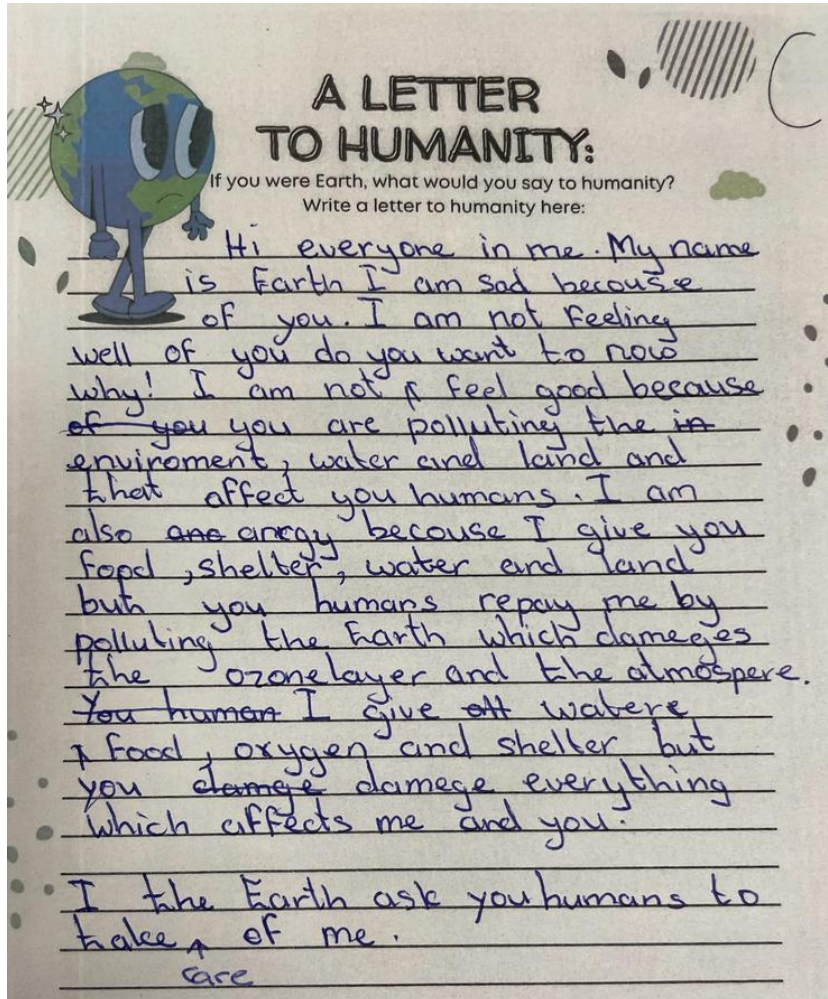 A LETTER
TO HUMANITY:
If you were Earth, what would you say to humanity?
Write a letter to humanity here:
Hi everyone in me. My name
is Earth I am sad becouse
of you. I am not feeling
well of you do you want to now
why! I am not feel good because
of you you are polluting the in
enviroment, water and land and
that affect you humans. I am
also ane anrgy becouse I give you
food, shelter, water and land
buh you humans repay me by
polluting the Earth which dameges
the ozonelayer and the atmospere.
You human I give watere
food, oxygen and shelter but
you damge damege everything
which affects me and you.
I the Earth ask you humans to
take care of me.